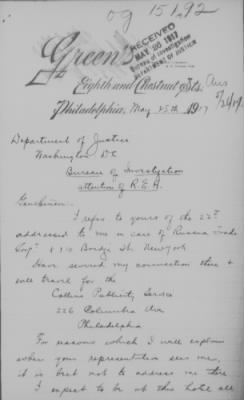 og 15192
Green's
RECEIVED
MAY 26 1917
Bureau of Investigation
DEPARTMENT OF JUSTICE
Eighth and Chestnut Sts.
Ans
5/26/17
Philadelphia, May 25th 1917
Department of Justice
Washington DC
Bureau of Investigation
attention of R.E.H.
Gentlemen:
I refer to yours of the 23d
addressed to me in care of Russia Trade
Corp. Bridge St. New York
Have severed my connection there &
will travel for the
Collins Publicity Service
226 Columbia Ave
Philadelphia
For reasons which I will explain
when your representative sees me,
it is best not to address me there
I expect to be at this hotel all